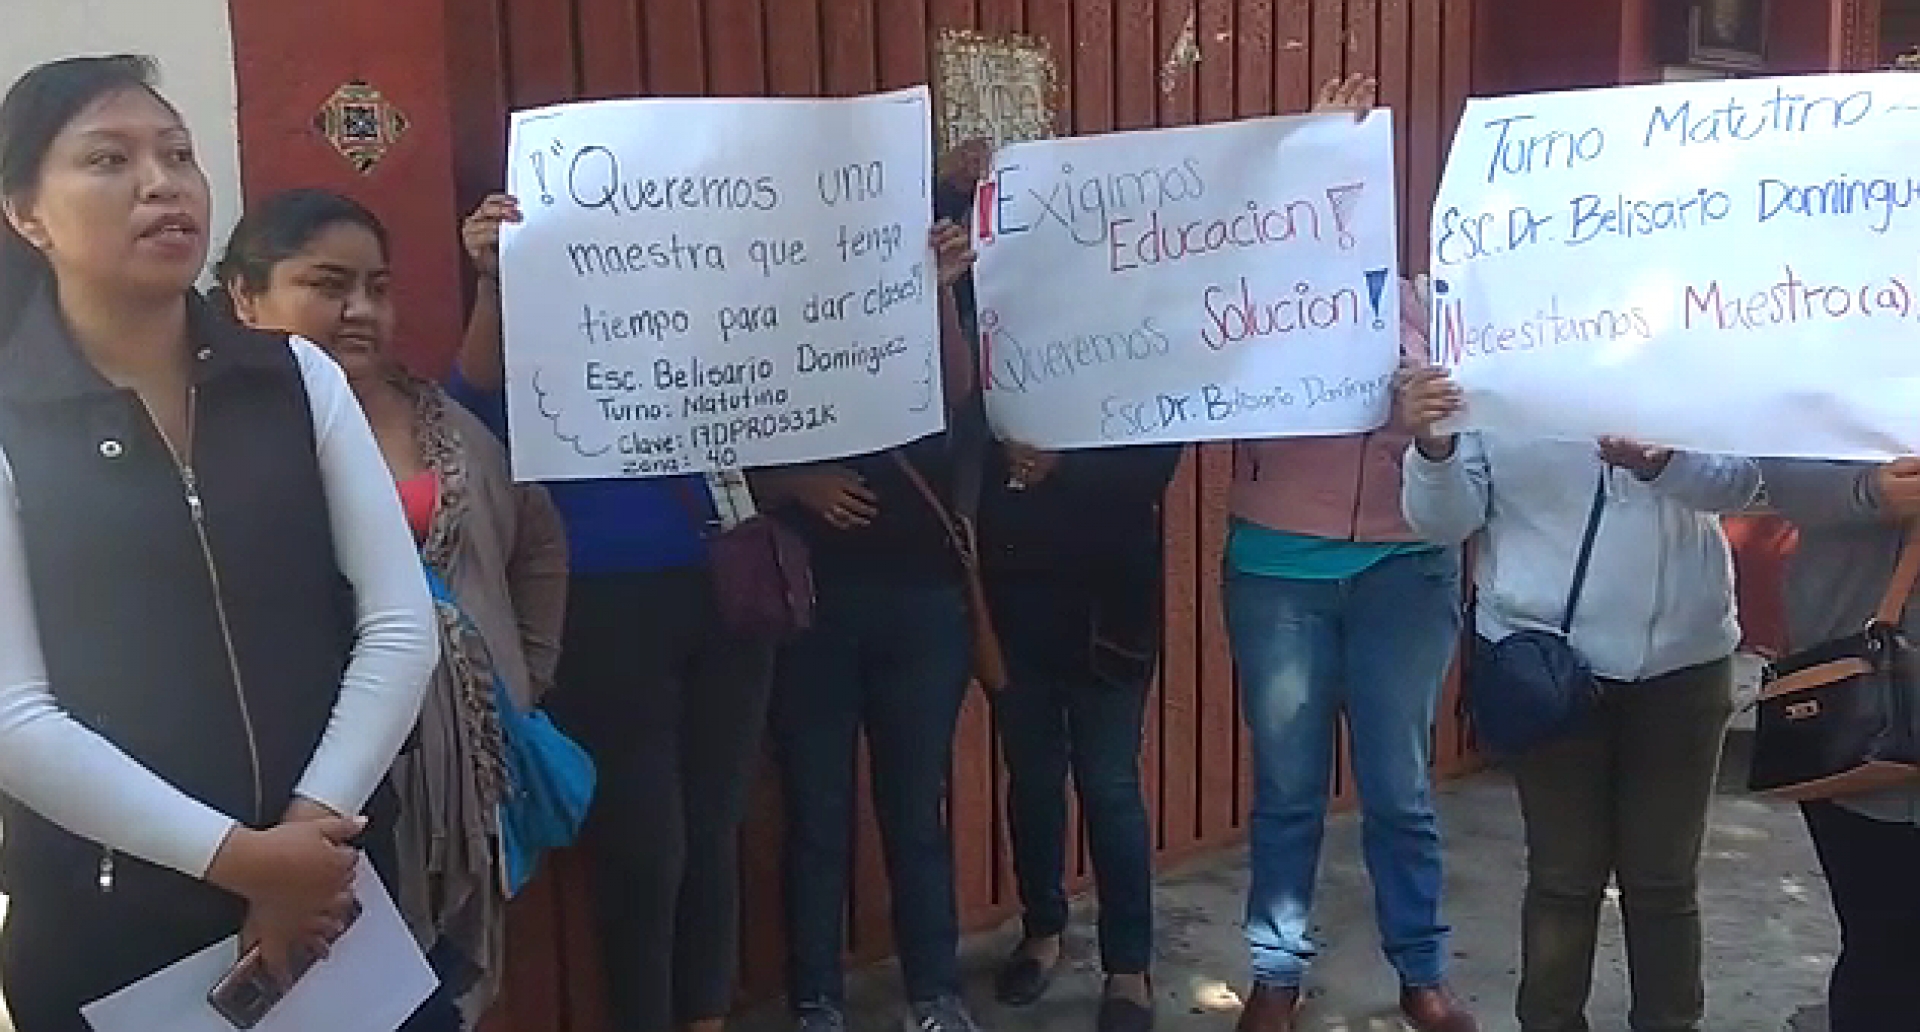 !"Queremos una
maestra que tenga
tiempo para dar clases!"
Esc. Belisario Domínguez
Turno: Matutino
Clave: 17DPR0532K
zona: 40
¡Exigimos
Educacion!
¡Queremos Solucion!
Esc. Dr. Belisario
Turno Matutino -
Esc. Dr. Belisario
¡Necesitamos Maestro(a)